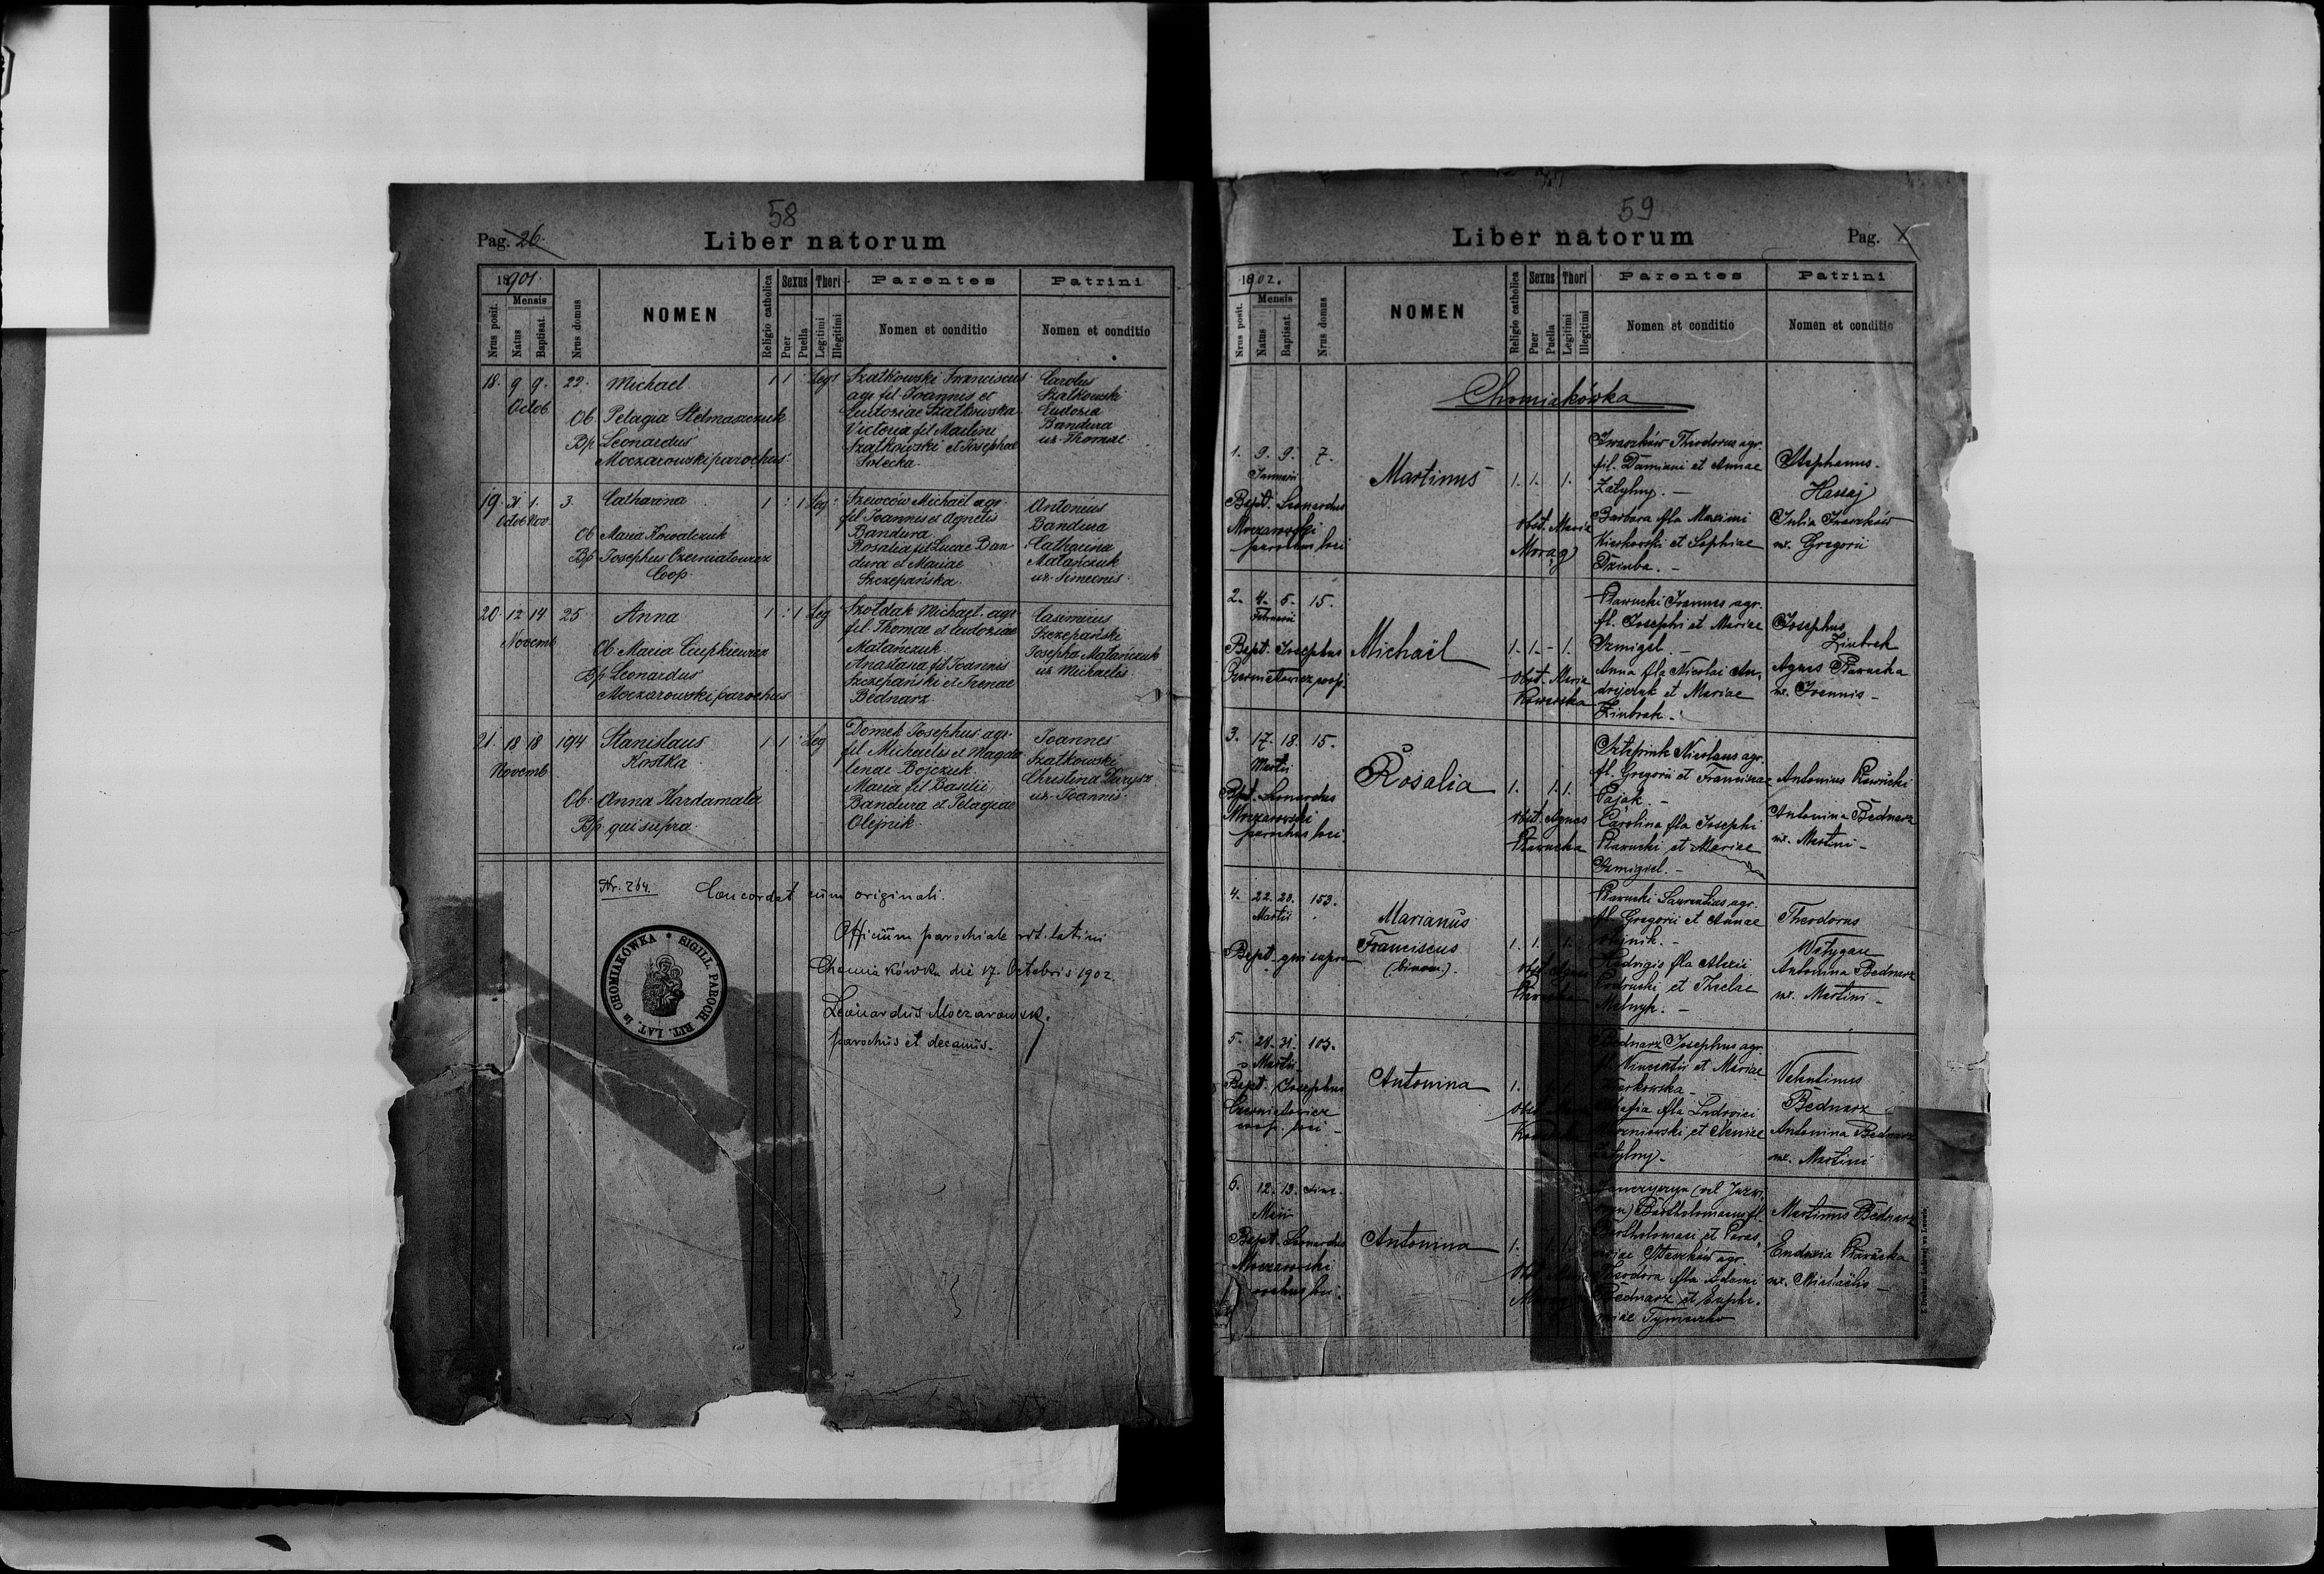 58
Pag. 26.
Liber natorum
1901.
Mensis
Nrus posit.
Natus
Baptisat.
Nrus domus
NOMEN
Religio catholica
Sexus
Puer
Puella
Thori
Legitimi
Illegitimi
Parentes
Nomen et conditio
Patrini
Nomen et conditio
18. 9 9. 22. Michael 1 1 Leg
Octob
Ob Pelagia Stelmaszczuk
Bp Leonardus
Moczarowski parochus
Szatkowski Franciscus
agr fil Joannis et
Eudoxiae Szatkowska
Victoria fil Martini
Szatkowski et Josephae
Solecka
Carolus
Szatkowski
Eudoxia
Bandura
ux Thomae
19. 31 1. 3. Catharina 1 : 1 Leg
Octob Nov.
Ob Maria Kowalczuk
Bp Josephus Czerniatowicz
Coop.
Szewców Michael agr
fil Joannis et Agnetis
Bandura
Rosalia fil Lucae Ban
dura et Mariae
Szczepańska
Antonius
Bandura
Catharina
Matańczuk
ux Simeonis
20. 12 14 25 Anna 1 : 1 Leg
Novemb
Ob. Maria Ciupkiewicz
Bp Leonardus
Moczarowski parochus
Szołdak Michael agr
fil Thomae et Eudoxiae
Matańczuk
Anastasia fil Joannis
Szczepański et Irenae
Bednarz
Casimirus
Szczepański
Josepha Matańczuk
ux Michaelis
21. 18 18 194 Stanislaus 1 1 : Leg
Kostka
Novemb
Ob. Anna Hardamała
Bp qui supra
Domek Josephus agr
fil Michaelis et Magda
lenae Bojczuk
Maria fil Basilii
Bandura et Pelagiae
Olejnik
Joannes
Szatkowski
Christina
ux Joannis
Nr. 264. Concordat cum originali.
Officium parochiale rit. latini
Chomiakówka die 17. Octobris 1902.
Leonardus Moczarowski
parochus et decanus.
SIGILL. PAROCH. RIT. LAT. in CHOMIAKÓWKA
59
Liber natorum
Pag.
1902.
Mensis
Nrus posit.
Natus
Baptisat.
Nrus domus
NOMEN
Religio catholica
Sexus
Puer
Puella
Thori
Legitimi
Illegitimi
Parentes
Nomen et conditio
Patrini
Nomen et conditio
Chomiakówka
1. 9. 9. 7. Martinus 1. 1. 1.
Januarii
Bapt. Leonardus
Moczarowski
parochus loci
obst. Maria
Morąg
Iwaszków Theodorus agr.
fil. Damiani et Annae
Załylny. –
Barbara fla Maximi
Kierkowski et Sophiae
Dziuba. –
Stephanus
Hassaj
Julia Iwaszków
ux. Gregorii
2. 4. 5. 15. Michaël 1. 1. – 1.
Februarii
Bapt. Josephus
Czerniatowicz coop.
obst. Maria
Joannes agr.
fl. Josephi et Mariae
Szmigel. –
Anna fla Nicolai An-
drijczuk et Mariae
Zinbrak. –
Josephus
Zinbrak
Agnes
ux. Joannis –
3. 17. 18. 15. Rosalia 1. 1. 1.
Martii
Bapt. Leonardus
Moczarowski
parochus loci
obst. Agnes
Nicolaus agr.
fl. Gregorii et Franciscae
Pająk. –
Carolina fla Josephi
et Mariae
Szmigiel. –
Antonius
Antonina Bednarz
ux. Martini –
4. 22. 23. 153. Marianus
Franciscus
(binom.)
1. 1. 1.
Martii
Bapt. qui supra
obst. Agnes
Laurentius agr.
fl. Gregorii et Annae
Olijnik. –
Hedvigis fla Alexii
et Theclae
Melnyk. –
Theodorus
Antonina Bednarz
ux. Martini –
5. 28. 31. 103. Antonina 1.
Martii
Bapt. Josephus
Czerniatowicz
coop. loci –
Bednarz Josephus agr.
fl. Vincentii et Mariae
Kierkowska –
fla Ludovici
et
Załylny –
Valentinus
Bednarz
Antonina Bednarz
ux. Martini
6. 12. 13. Antonina 1.
Maii
Bapt. Leonardus
Moczarowski
parochus loci.
Bartholomaeus fl.
Bartholomaei et Paras-
agr.
Theodora fla Adami
Bednarz et Euphe-
miae Tymuszko
Martinus Bednarz
Eudoxia
ux. Michaëlis –